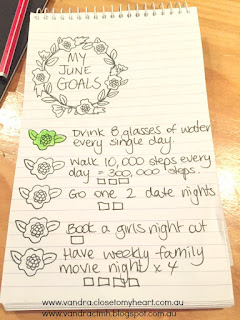 MY
JUNE
GOALS
Drink 8 glasses of water
every single day.
Walk 10,000 steps every
day = 300,000 steps.
Go one 2 date nights
Book a girls night out
Have weekly family
movie night x 4
www.vandra.closetomyheart.com.au
www.vandractmh.blogspot.com.au